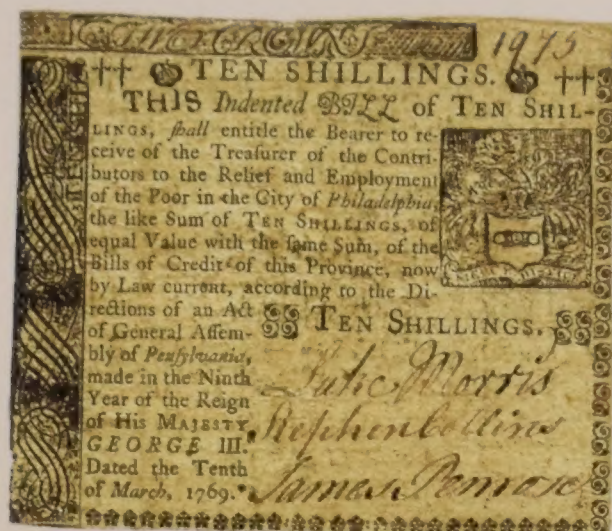 1975
TEN SHILLINGS.
THIS Indented BILL of TEN SHIL-
LINGS, shall entitle the Bearer to re-
ceive of the Treasurer of the Contri-
butors to the Relief and Employment
of the Poor in the City of Philadelphia,
the like Sum of TEN SHILLINGS, of
equal Value with the same Sum, of the
Bills of Credit of this Province, now
by Law current, according to the Di-
rections of an Act
of General Assem-
bly of Pensylvania,
made in the Ninth
Year of the Reign
of His MAJESTY
GEORGE III.
Dated the Tenth
of March, 1769.
TEN SHILLINGS.
Luke Morris
Stephen Collins
James Penrose